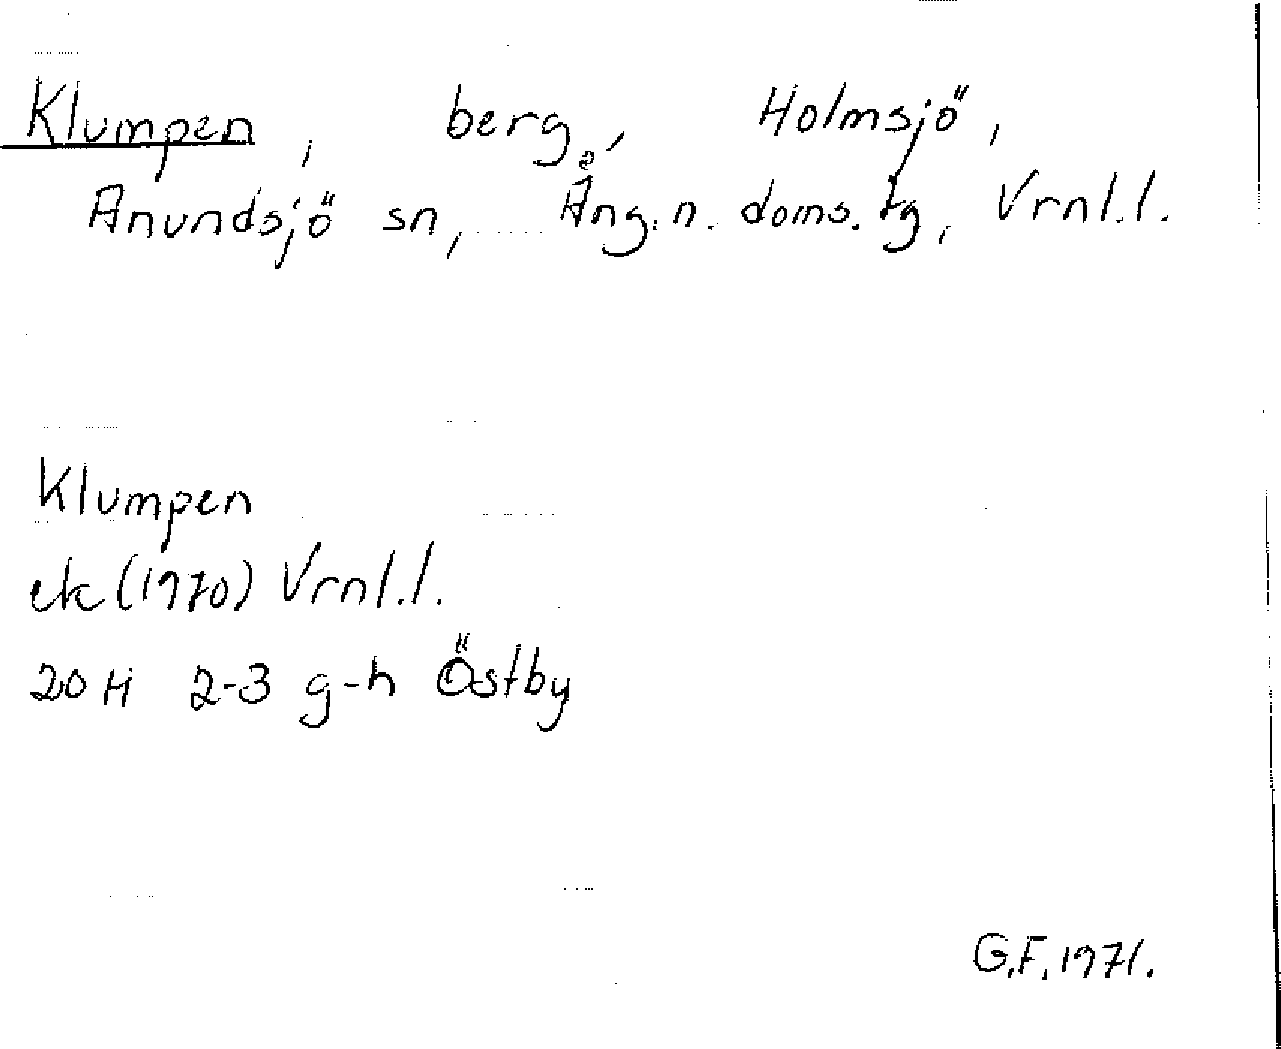 Klumpen, berg, Holmsjö,
Anundsjö sn, Ång. n. doms. tg, Vrnl.l.
Klumpen
ek (1970) Vrnl.l.
20 H 2-3 g-h Östby
G.F. 1971.